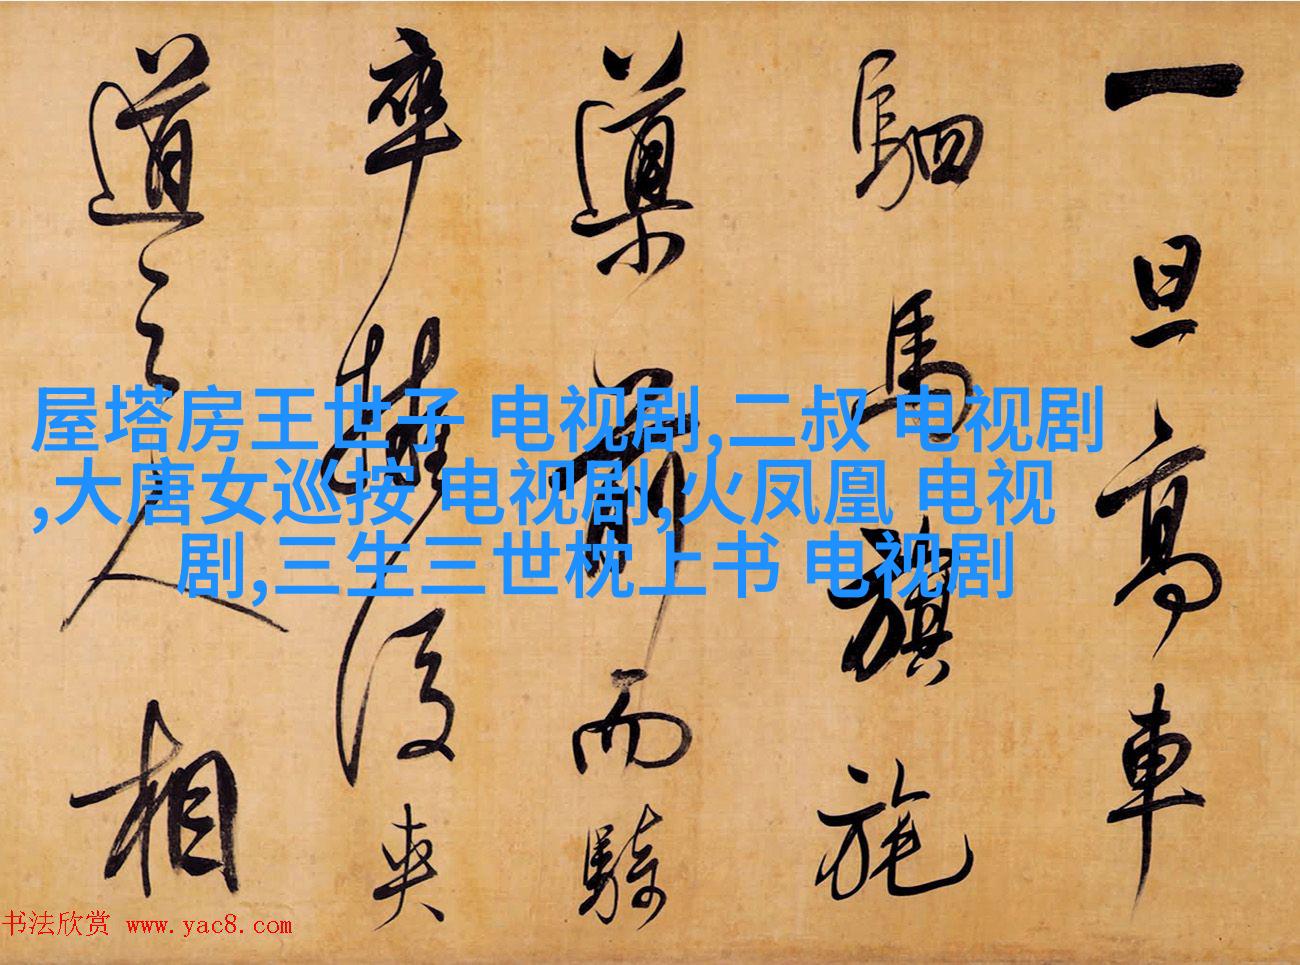 一旦高車
駟馬旗旄
導前而騎
卒擁後夾
道之人相
屋塔房王世子 电视剧,二叔 电视剧
,大唐女巡按 电视剧,火凤凰 电视
剧,三生三世枕上书 电视剧
书法欣赏 www.yac8.com